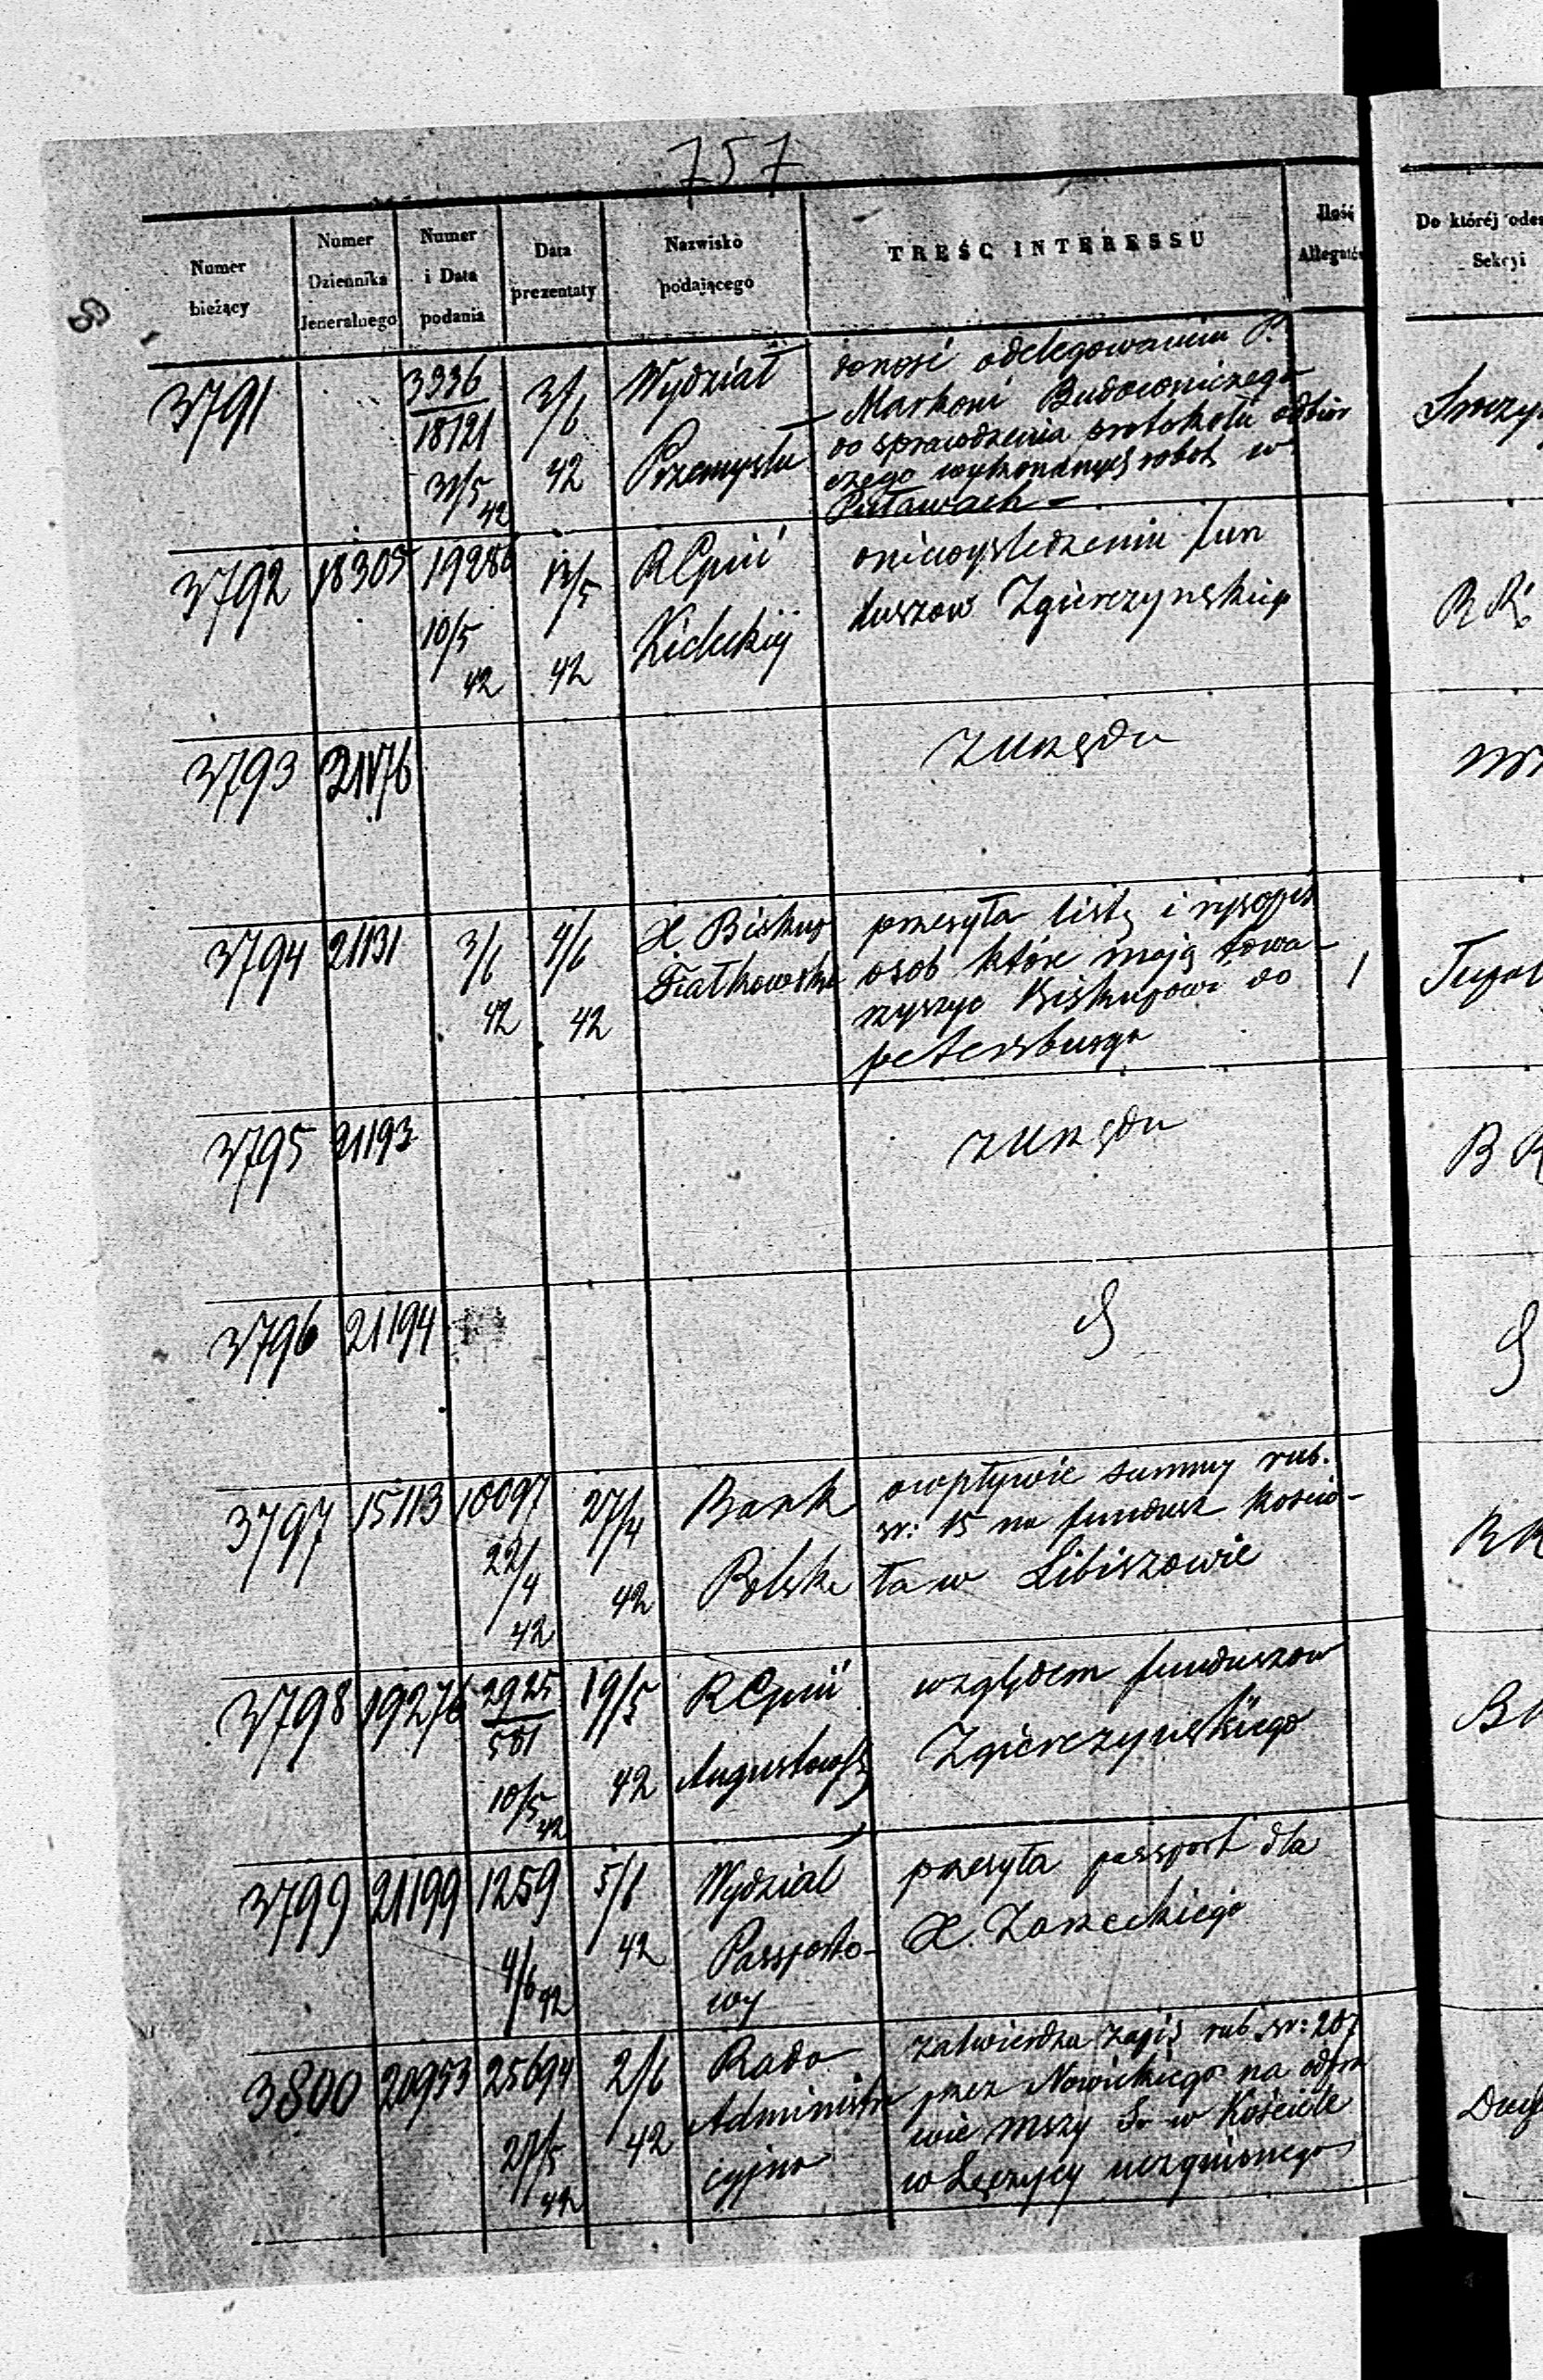 757
Numer bieżący
Numer Dziennika Jeneralnego
Numer i Data podania
Data prezentaty
Nazwisko podającego
TREŚĆ INTERESSU
Ilość Allegatów
Do któréj odes
Sekcyi
3791
3336
18121
31/5 42
3/6 42
Wydział
Przemysłu
donosi odelegowaniu P.
Markoni Budowniczego
do sprawdzenia protokołu odbior
czego wykonanych robot w
Puławach
3792 18305 19286
10/5 42
13/5 42
RGpiii
Kieleckiij
oniewyśledzeniu fun
duszow Zgierczynskiego
RR
3793
zurzędu
3794 21131
3/6 42
4/6 42
X Biskup
Fiałkowski
przesyła listę i rysopis
osob które mają towa-
rzyszyc Biskupowi do
petersburga
1
3795 21193
zurzędu
3796 21194
3797 15113 10097
22/4 42
27/4 42
Bank
Polski
owpływie summy rub.
sr: 15 na fundusz Kościo-
ła w Libiszowie
3798 19276 2925
501
10/5 42
19/5 42
RGpiii
Augustows
względem funduszow
Zgierczyńskiego
3799 21199 1259
4/6 42
5/6 42
Wydział
Passporto-
wy
przesyła passport dla
X. Zarzeckiego
3800 20953 25694
27/5 42
2/6 42
Rada
Administra
cyjna
zatwierdza zapis rub sr: 207
przez Nowickiego na odpra
wie Mszy S. w Kościele
w Łęczycy uczynionego